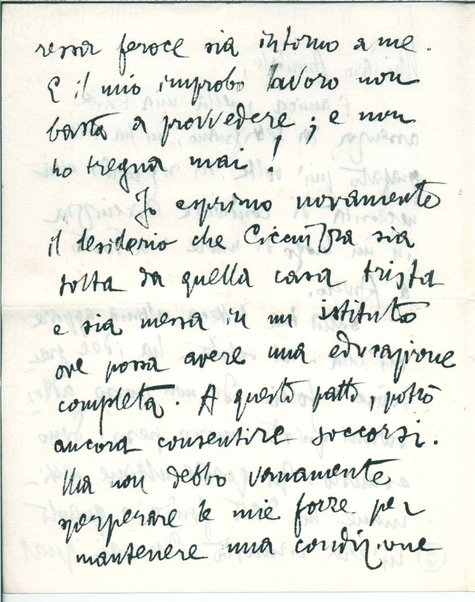 ressa feroce sia intorno a me.
E il mio improbo lavoro non
basta a provvedere; e non
ho tregua mai!
Io esprimo novamente
il desiderio che Cicciuzza sia
tolta da quella casa trista
e sia messa in un istituto
ove possa avere una educazione
completa. A questo patto, potrò
ancora consentire soccorsi.
Ma non debbo vanamente
sperperare le mie forze per
mantenere una condizione